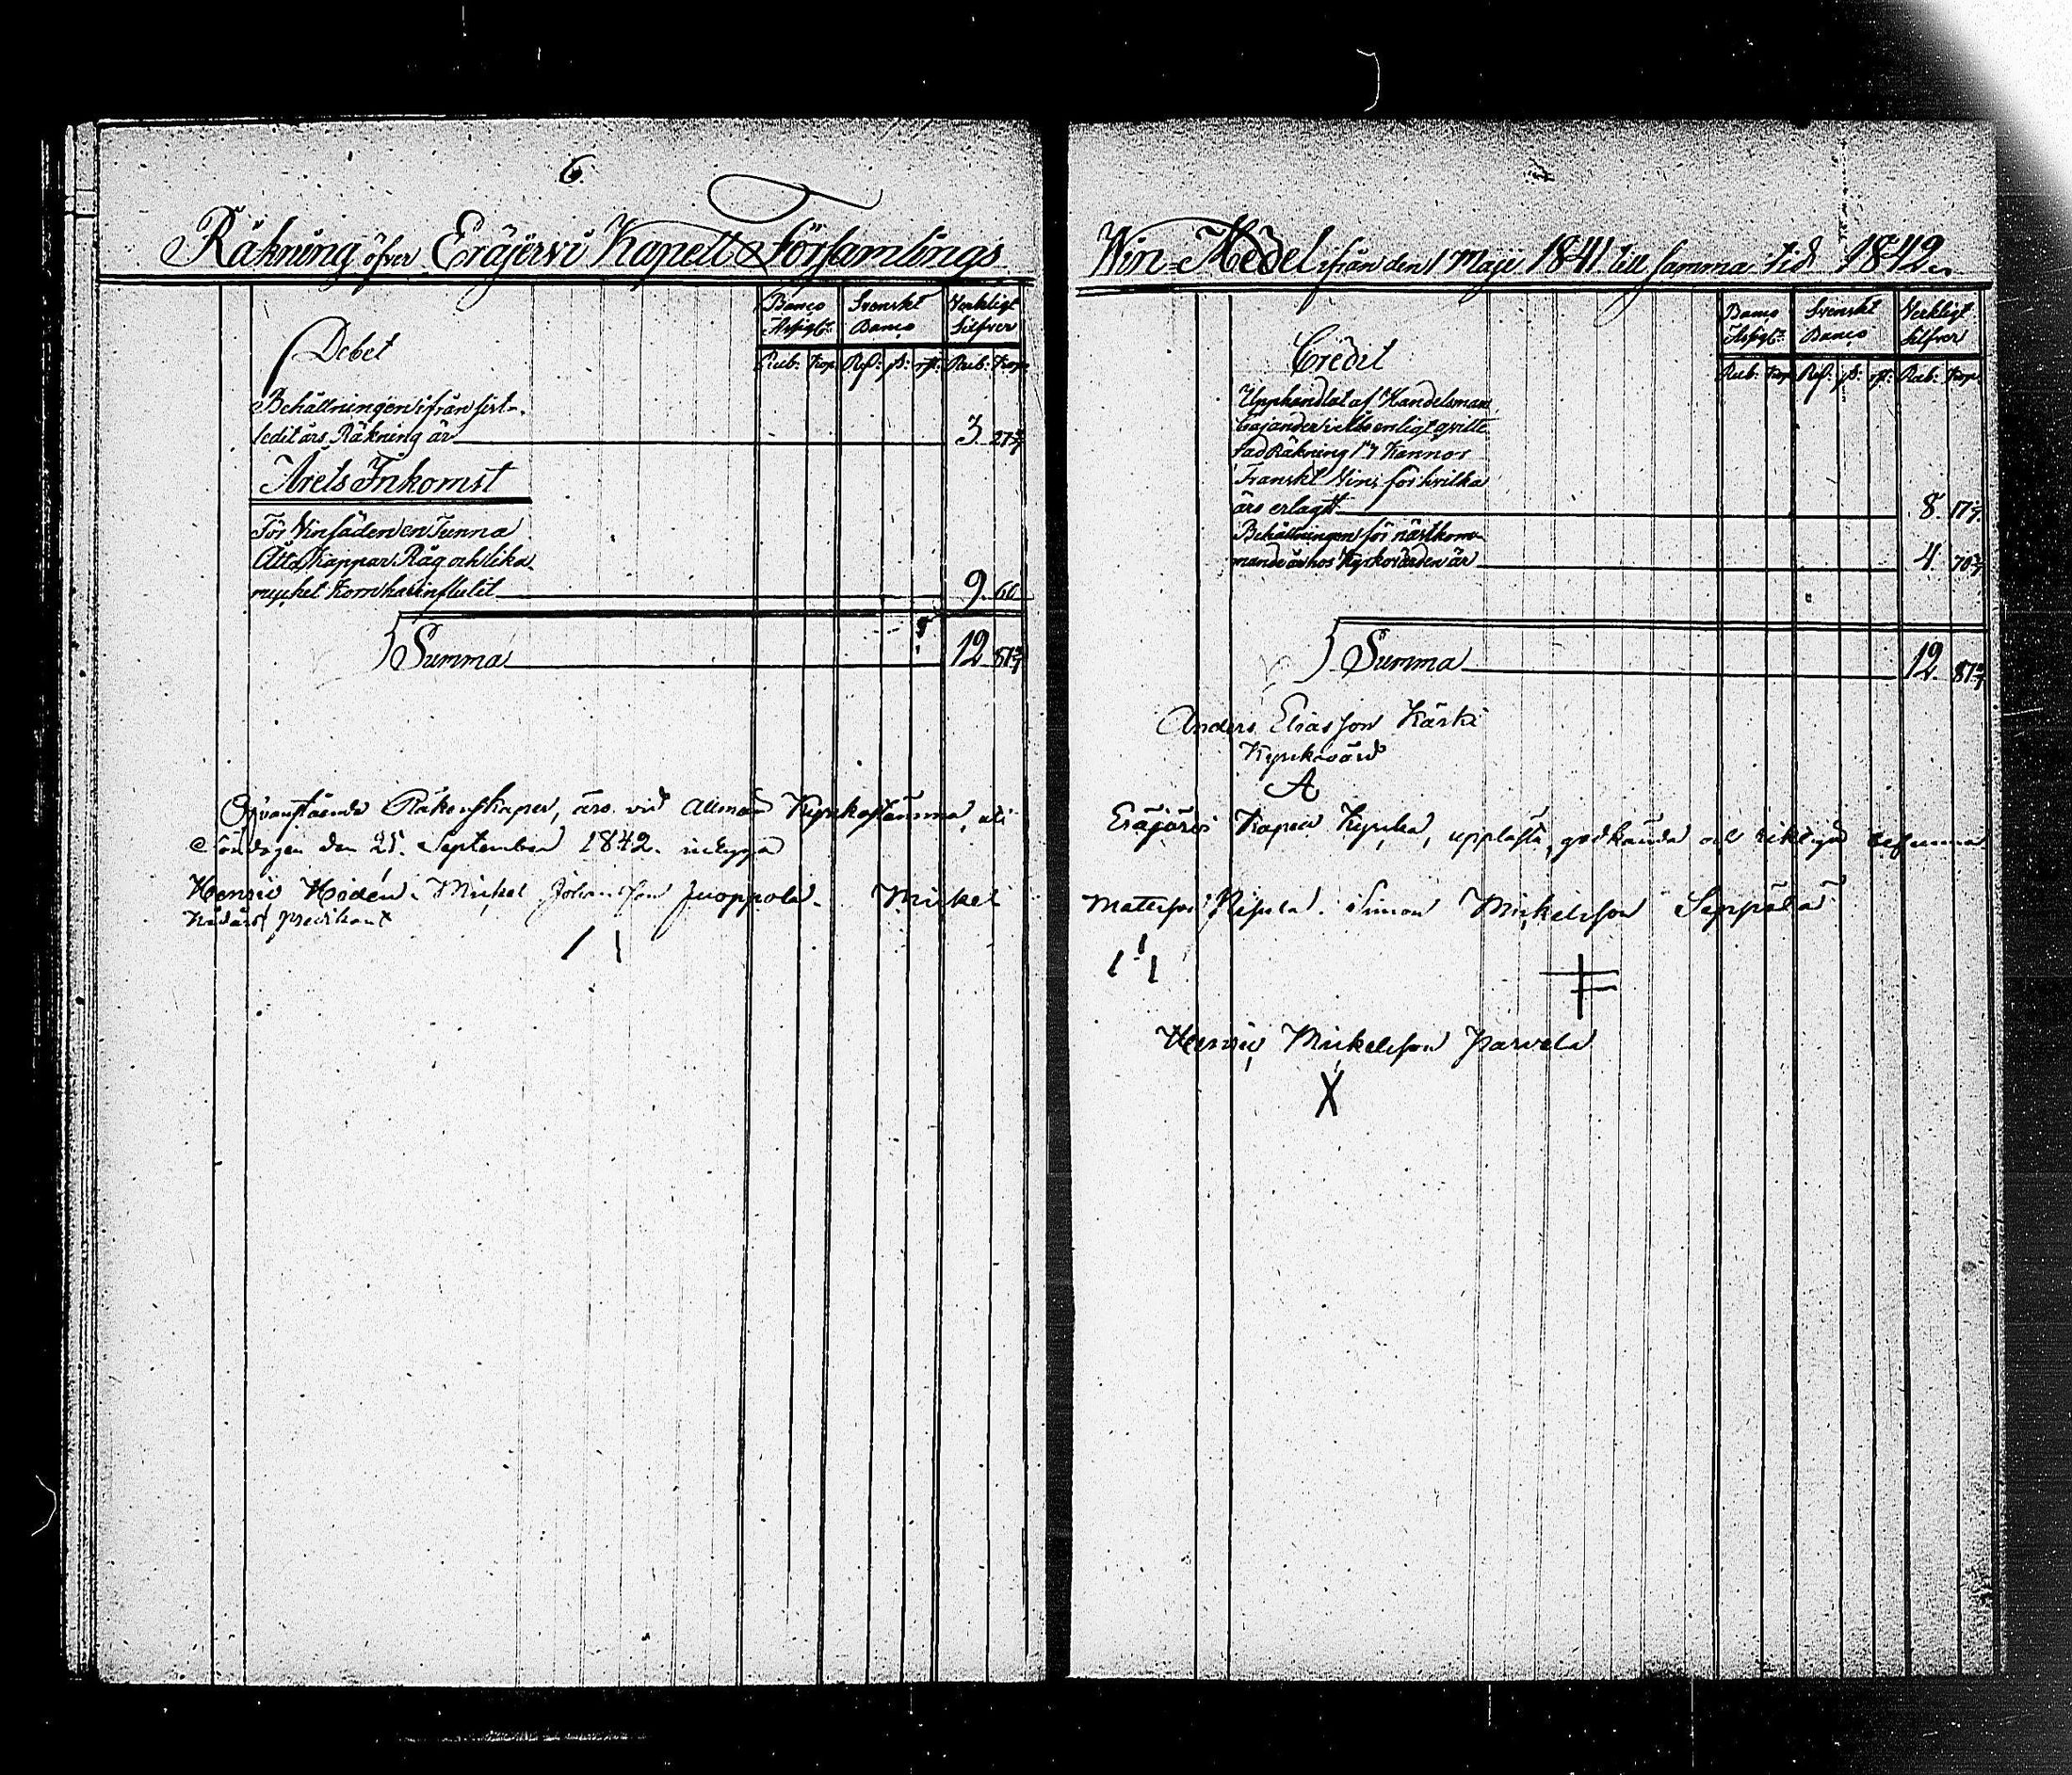 6.
Räkning öfver Eräjervi Kapell Församlings
Banco Svenskt Verkligt
Assign: Banco Silfver
Debet
Rub. Kop. Rd: ß: rst: Rub. Kop.
Behållningen ifrån sist-
ledit års Räkning är 3 27 5/7
Årets Inkomst
För Vinsäden en Tunna
Åtta Kappar Råg och lika
mycket Korn har influtit 9. 60
Summa 12 87 5/7
Ofvanstående Räkenskaper, äro vid Allmän Kyrkostämma, uti
Söndagen den 25. September 1842. inlyga
Henric Hidén. Mickel Johansson Juoppola. Mickel
predikant
Win-Medel ifrån den 1 Maji 1841 till samma tid 1842.
Banco Svenskt Verkligt
Assign: Banco Silfver
Credit
Rub. Kop. Rd: ß: rst: Rub: Kop.
Upphandlat af Handelsman
Cajander i Åbo enligt qvitte-
rad Räkning 1" 7 Kannor
Franskt Vin, för hvilka
är erlagt 8. 17 1/7.
Behållningen för nästkom-
mande år hos Kyrkovärden är 4 70 4/7
Summa 12. 87 5/7
Anders Eliasson Kärki
Kyrkovärd
A
Eräjärvi Kapell Kyrka, upplästa, godkända och riktiga befunna
Mattsson Simon Mickelsson Seppälä
Henric Mickelsson Parvela
X